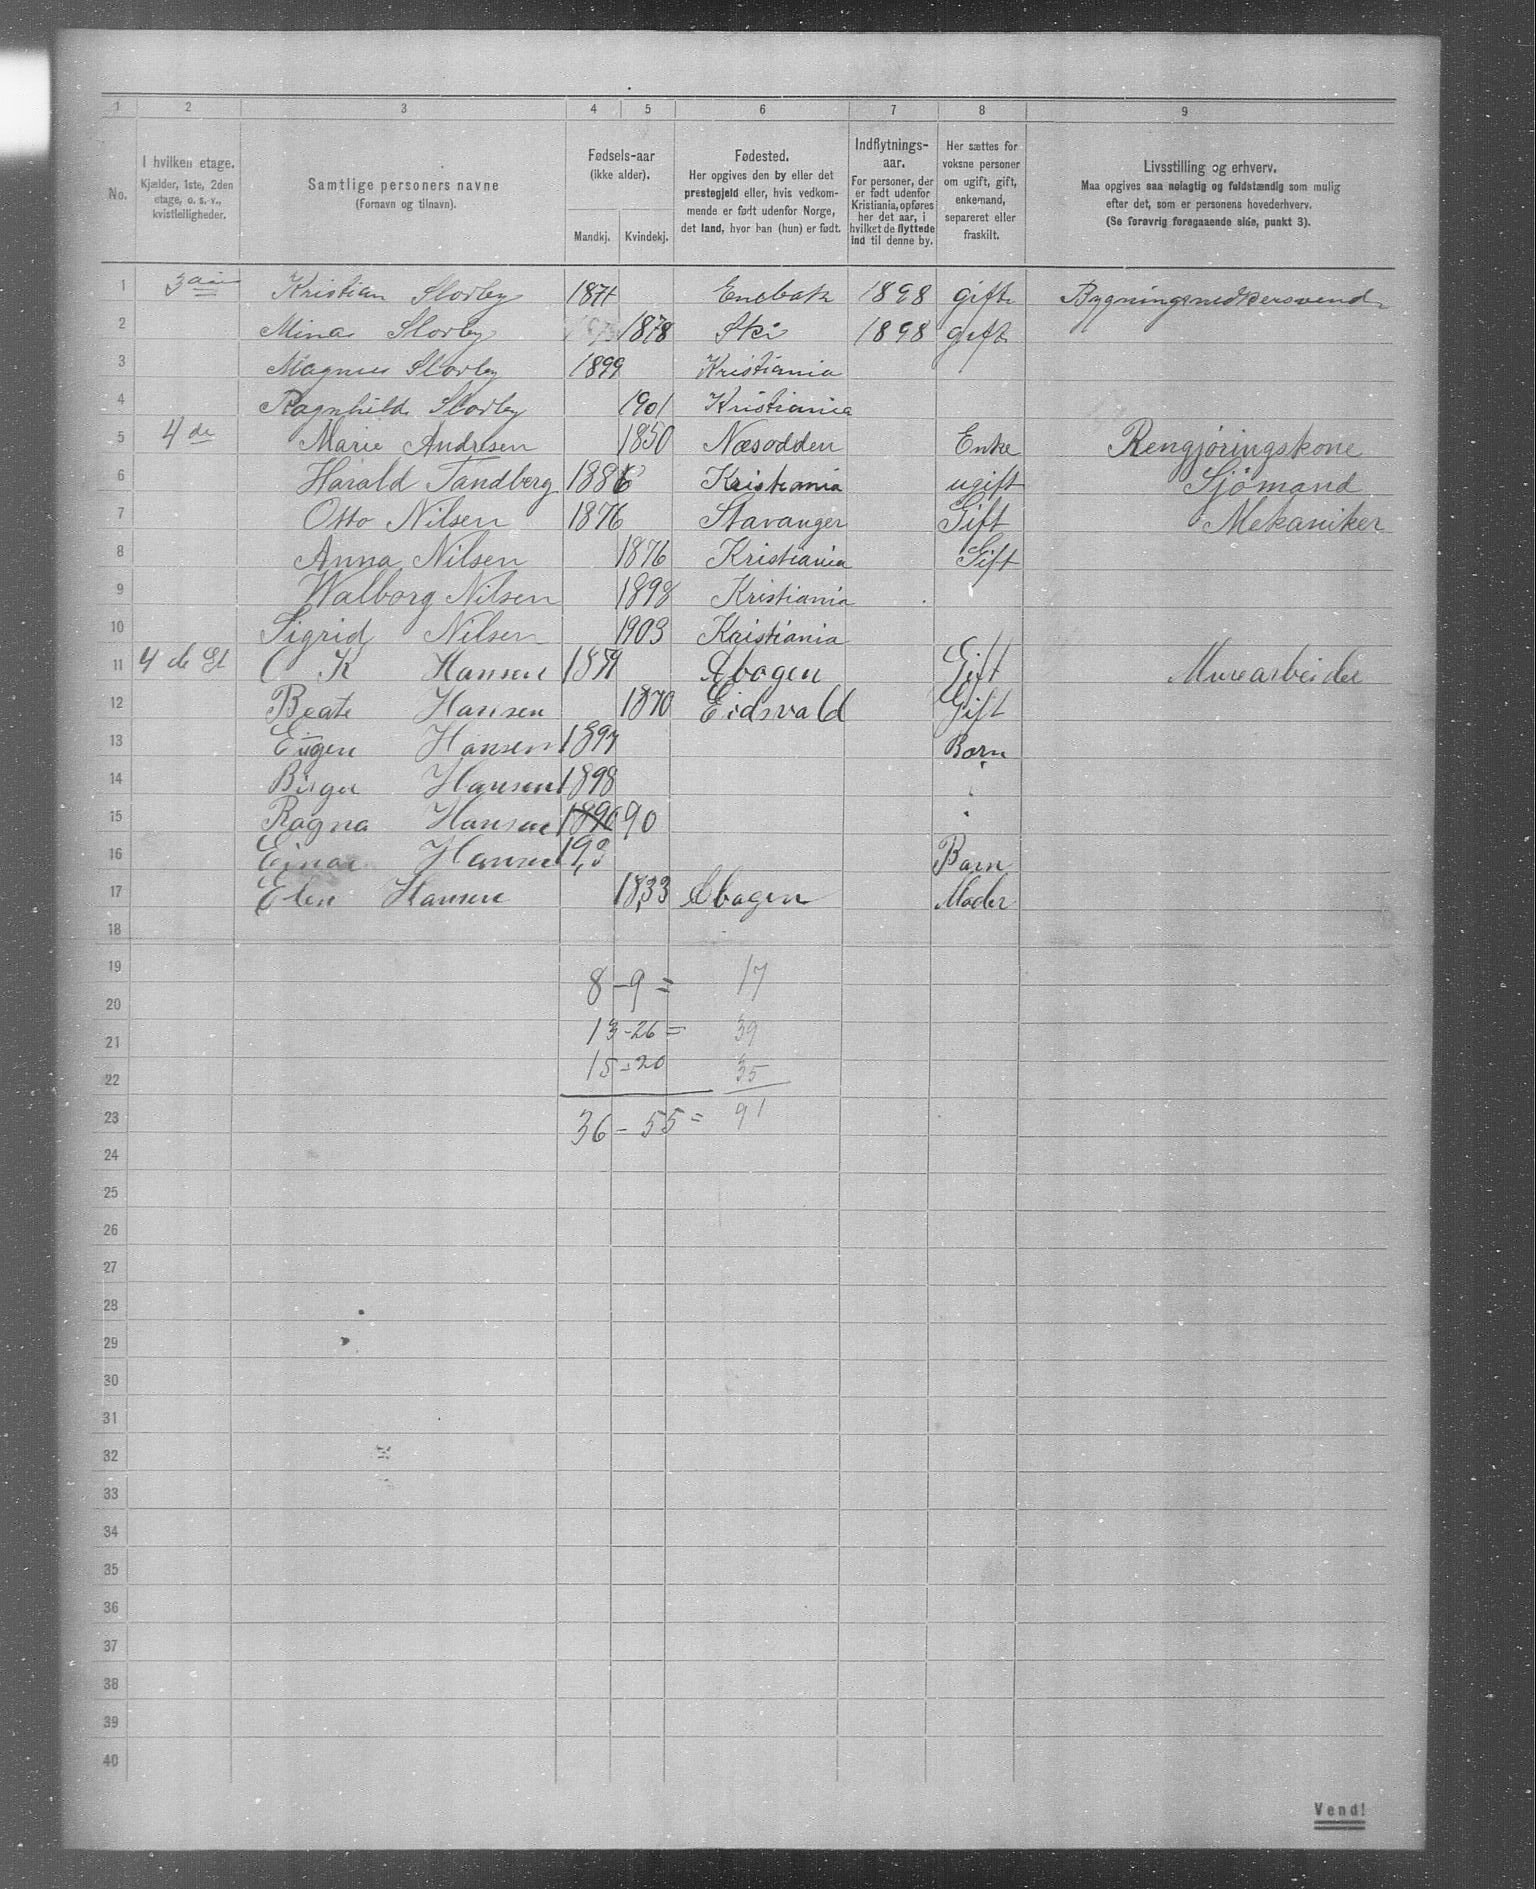 1 2 3 4 5 6 7 8 9
No.
I hvilken etage.
Kjælder, 1ste, 2den
etage, o. s. v.,
kvistleiligheder.
Samtlige personers navne
(Fornavn og tilnavn).
Fødsels-aar
(ikke alder).
Mandkj. Kvindekj.
Fødested.
Her opgives den by eller det
prestegjeld eller, hvis vedkom-
mende er født udenfor Norge,
det land, hvor han (hun) er født.
Indflytnings-
aar.
For personer, der
er født udenfor
Kristiania, opføres
her det aar, i
hvilket de flyttede
ind til denne by.
Her sættes for
voksne personer
om ugift, gift,
enkemand,
separeret eller
fraskilt.
Livsstilling og erhverv.
Maa opgives saa nøiagtig og fuldstændig som mulig
efter det, som er personens hovederhverv.
(Se forøvrig foregaaende side, punkt 3).
1 Kristian Slorby 1871 Enebak 1898 gift Bygningsnedkersvend
2 Mina Slorby 1878 Ski 1898 gift
3 Magnus Slorby 1899 Kristiania
4 Ragnhild Slorby 1901 Kristiania
5 4 de Marie Andresen 1850 Næsodden Enke Rengjøringskone
6 Harald Tandberg 1886 Kristiania ugift Sjömand
7 Otto Nilsen 1876 Stavanger Gift Mekaniker
8 Anna Nilsen 1876 Kristiania Gift
9 Walborg Nilsen 1898 Kristiania
10 Sigrid Nilsen 1903 Kristiania
11 4 de Et K Hansen Gift Murearbeider
12 Beate Hansen 1870 Eidsvald Gift
13 Eugen Hansen 1897 Barn
14 Birger Hansen 1898
15 Ragna Hansen 1890 90
16 Einar Hansen Barn
17 Elen Hansen 1833 Moder
18
19 8 - 9 = 17
20
21 13 - 26 = 39
22 15 - 20 35
23 36 - 55 = 91
24
25
26
27
28
29
30
31
32
33
34
35
36
37
38
39
40
Vend!